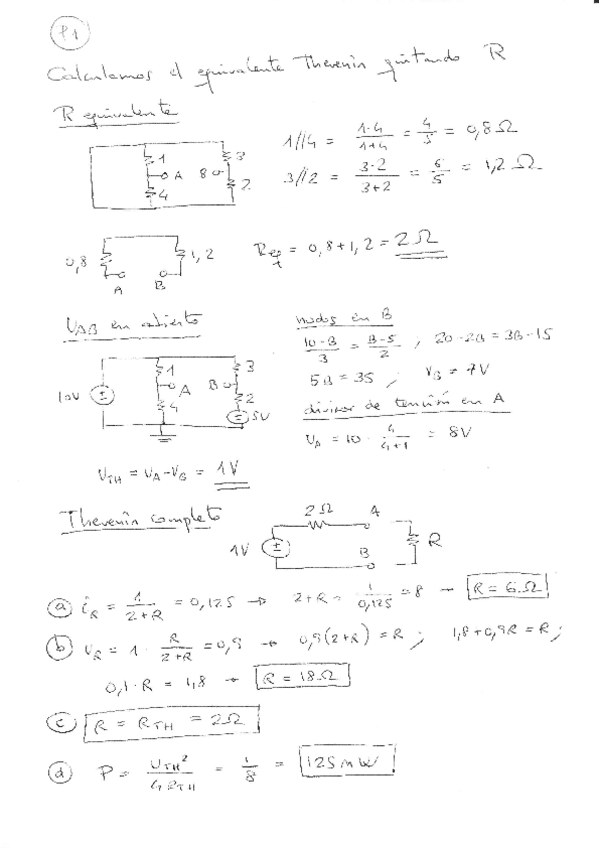 P1
Calculamos el equivalente Thevenin quitando R
R equivalente
1//4 = 1·4/1+4 = 4/5 = 0,8 Ω
3//2 = 3·2/3+2 = 6/5 = 1,2 Ω
1 A 4 B 3 2
0,8 A B 1,2
Req = 0,8 + 1,2 = 2 Ω
VAB en abierto
nudos en B
10-B/3 = B-5/2 , 20-2B = 3B-15
5B = 35 ; VB = 7V
10V 1 A 4 B 3 2 5V
divisor de tensión en A
VA = 10 · 4/4+1 = 8V
VTH = VA - VB = 1V
Thevenin completo
1V 2 Ω A B R
a iR = 1/2+R = 0,125 → 2+R = 1/0,125 = 8 → R = 6 Ω
b VR = 1 · R/2+R = 0,9 → 0,9(2+R) = R ; 1,8+0,9R = R ;
0,1·R = 1,8 → R = 18 Ω
c R = RTH = 2 Ω
d P = VTH²/4RTH = 1/8 = 125 mW